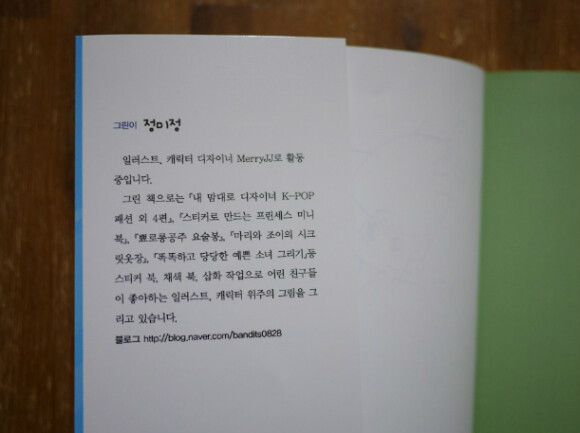 그린이 정미정
일러스트, 캐릭터 디자이너 MerryJJ로 활동
중입니다.
그린 책으로는 『내 맘대로 디자이너 K-POP
패션 외 4편』, 『스티커로 만드는 프린세스 미니
북』, 『뾰로롱공주 요술봉』, 『마리와 조이의 시크
릿옷장』, 『똑똑하고 당당한 예쁜 소녀 그리기』등
스티커 북, 채색 북, 삽화 작업으로 어린 친구들
이 좋아하는 일러스트, 캐릭터 위주의 그림을 그
리고 있습니다.
블로그 http://blog.naver.com/bandits0828